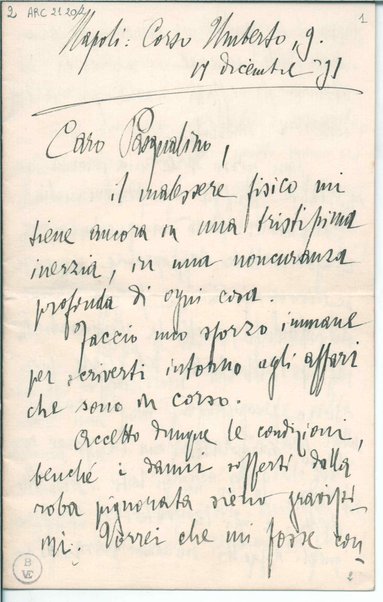 2 ARC 21 29/2
1
Napoli: Corso Umberto, 9.
17 dicembre '91
Caro Pasqualino,
il malessere fisico mi
tiene ancora in una tristissima
inerzia, in una noncuranza
profonda di ogni cosa.
Faccio uno sforzo immane
per scriverti intorno agli affari
che sono in corso.
Accetto dunque le condizioni,
benché i danni sofferti dalla
roba pignorata sieno gravissi-
mi. Vorrei che mi fosse con-
B
VE
2